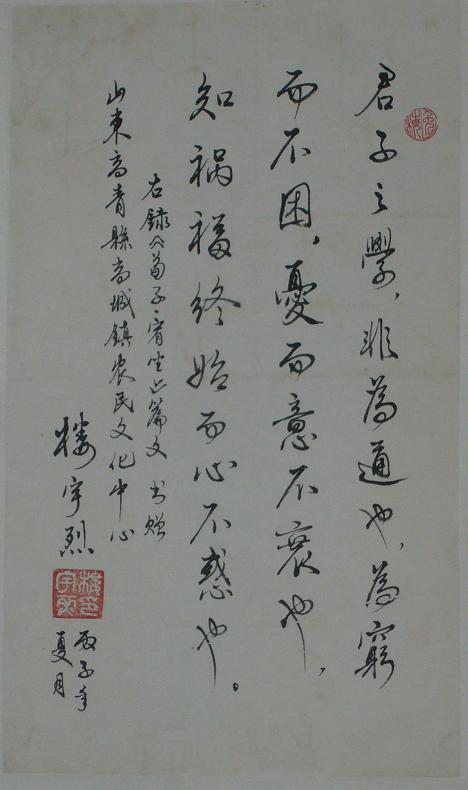 君子之學，非為通也，為窮
而不困，憂而意不衰也，
知禍福終始而心不惑也。
右錄《荀子·宥坐》篇文 书贈
山東高青縣高城鎮农民文化中心
樓宇烈
丙子年
夏月